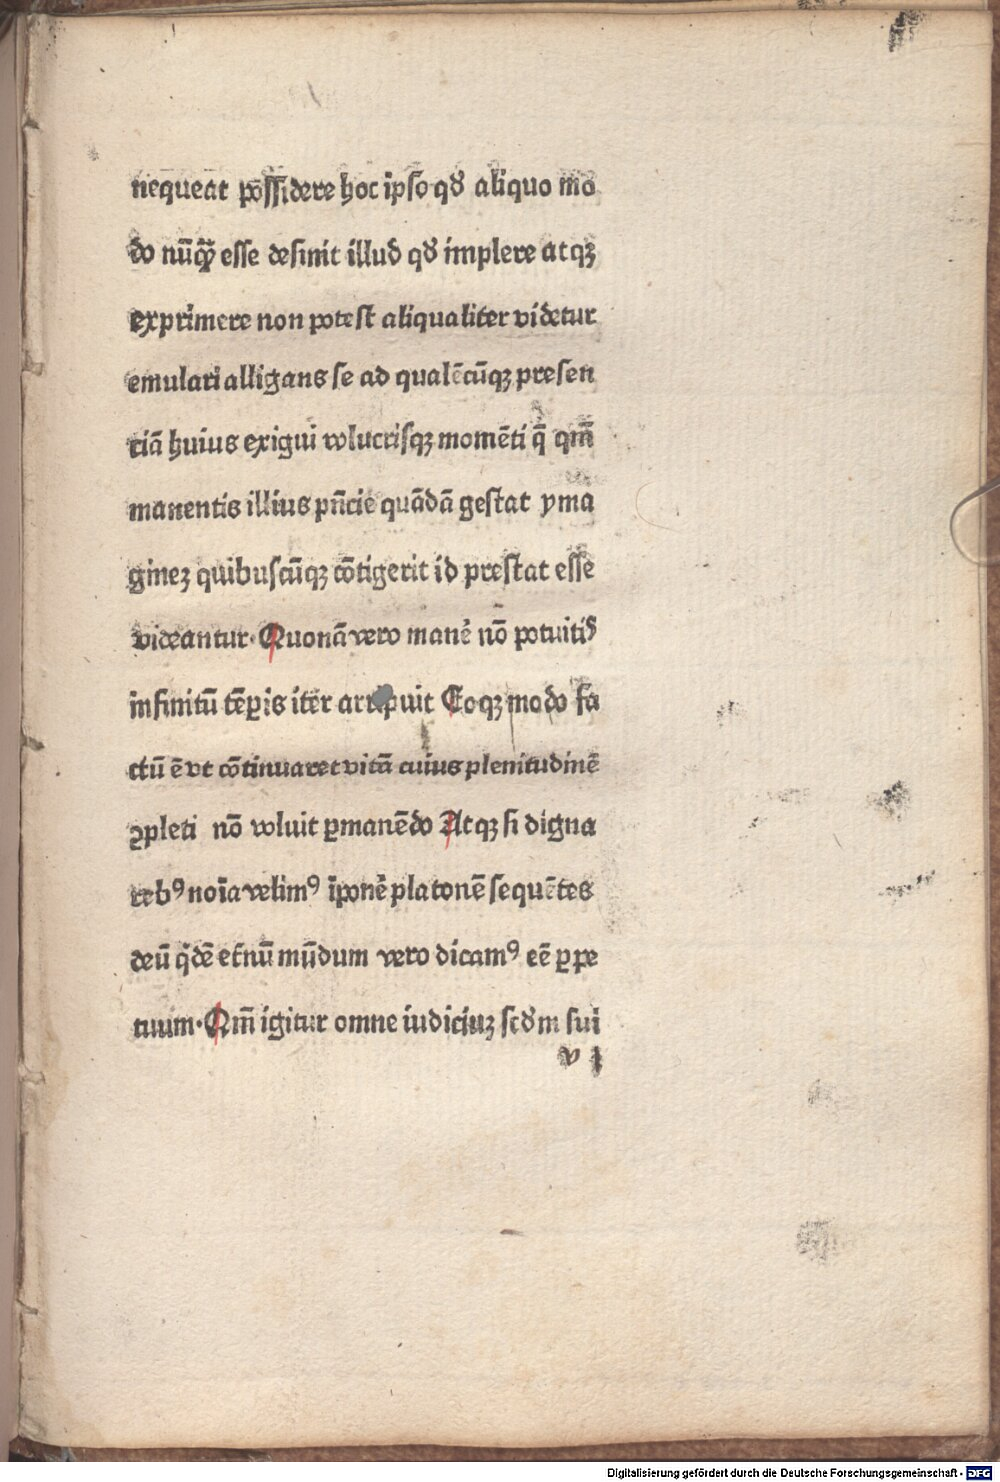 nequeat possidere hoc ipso qꝺ aliquo mo
do nūqꝫ̄ esse desinit illud qꝺ implere atqꝫ
exprimere non potest aliqualiter videtur
emulari alligans se ad qualēcūqꝫ presen
tiā huius exigui volucrisqꝫ momēti q̄ qm̄
manentis illius pn̄cie quādā gestat yma
ginez quibuscūqꝫ cōtigerit id prestat esse
videantur· Quonā vero manē nō potuitꝰ
infinitū tēꝑis iter arripuit Eoqꝫ modo fa
ctū ē vt cōtinuaret vitā cuius plenitudinē
ꝯpleti nō voluit ꝑmanēdo Atqꝫ si digna
rebꝰ noīa velimꝰ īponē platonē sequētes
deū q̇dē et̄nū mūdum vero dicamꝰ eē ꝑpe
tuum· Qm̄ igitur omne iudiciuꝫ scꝺm sui
v j
Digitalisierung gefördert durch die Deutsche Forschungsgemeinschaft - DFG